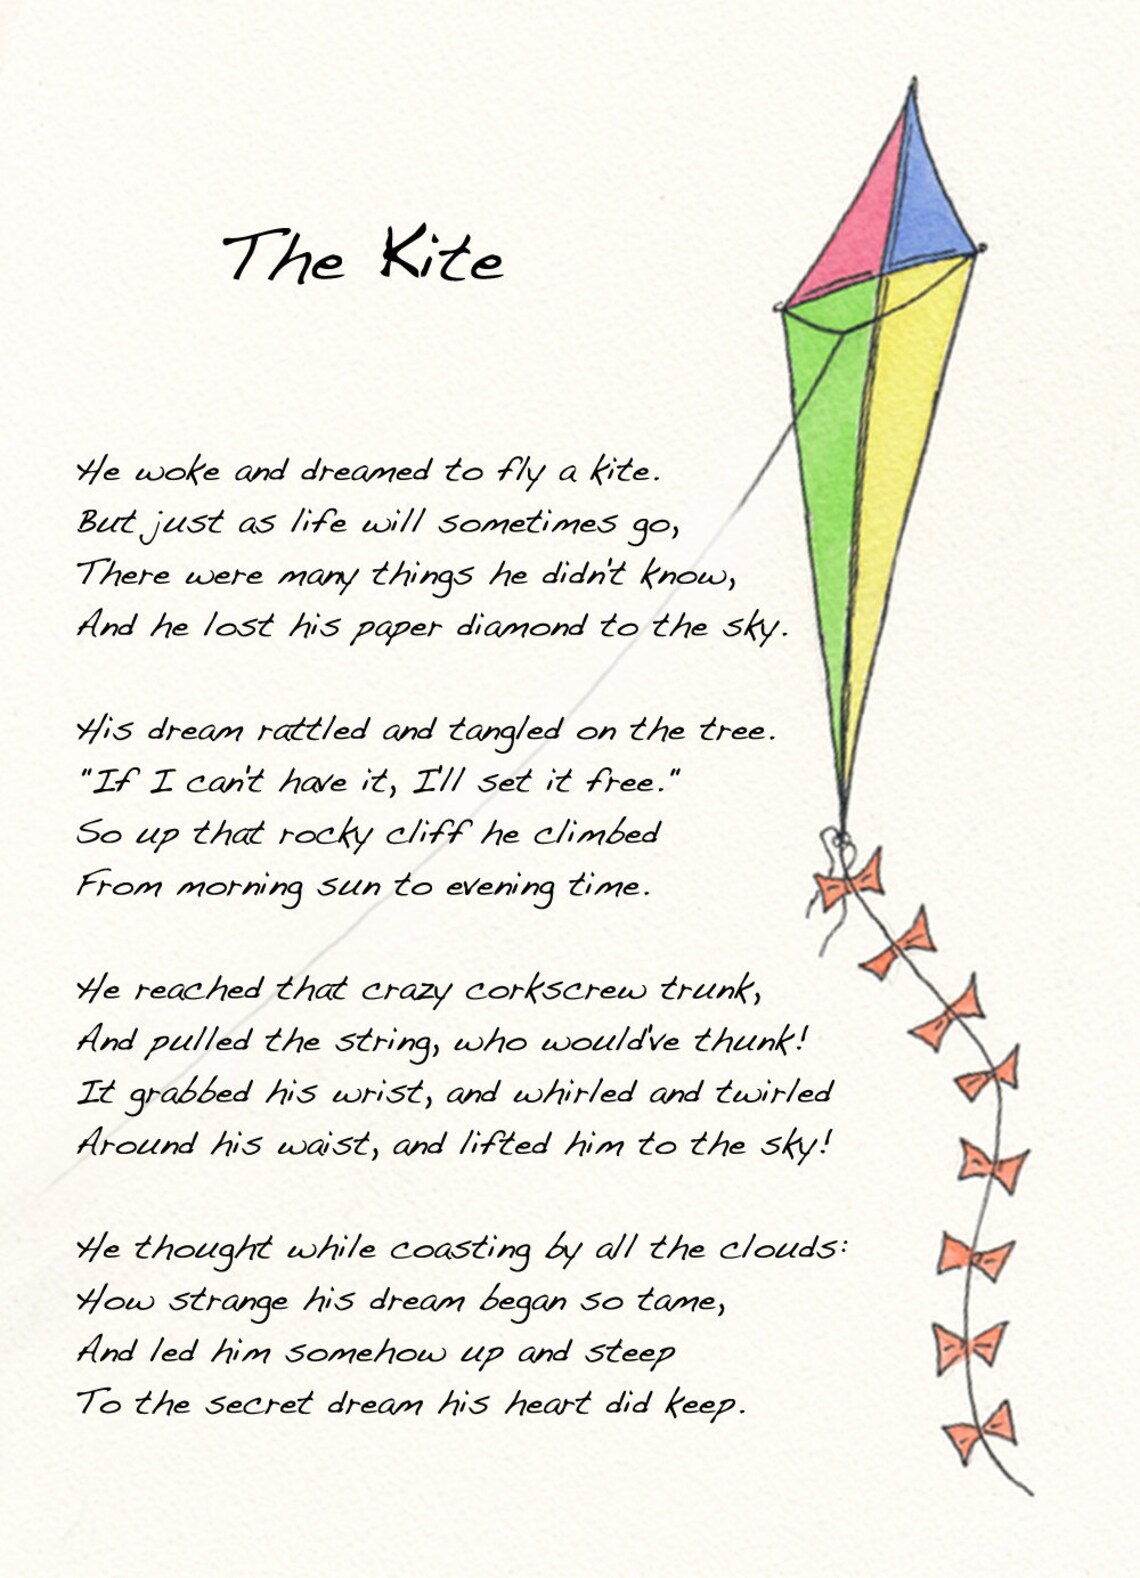 The Kite
He woke and dreamed to fly a kite.
But just as life will sometimes go,
There were many things he didn't know,
And he lost his paper diamond to the sky.
His dream rattled and tangled on the tree.
"If I can't have it, I'll set it free."
So up that rocky cliff he climbed
From morning sun to evening time.
He reached that crazy corkscrew trunk,
And pulled the string, who would've thunk!
It grabbed his wrist, and whirled and twirled
Around his waist, and lifted him to the sky!
He thought while coasting by all the clouds:
How strange his dream began so tame,
And led him somehow up and steep
To the secret dream his heart did keep.